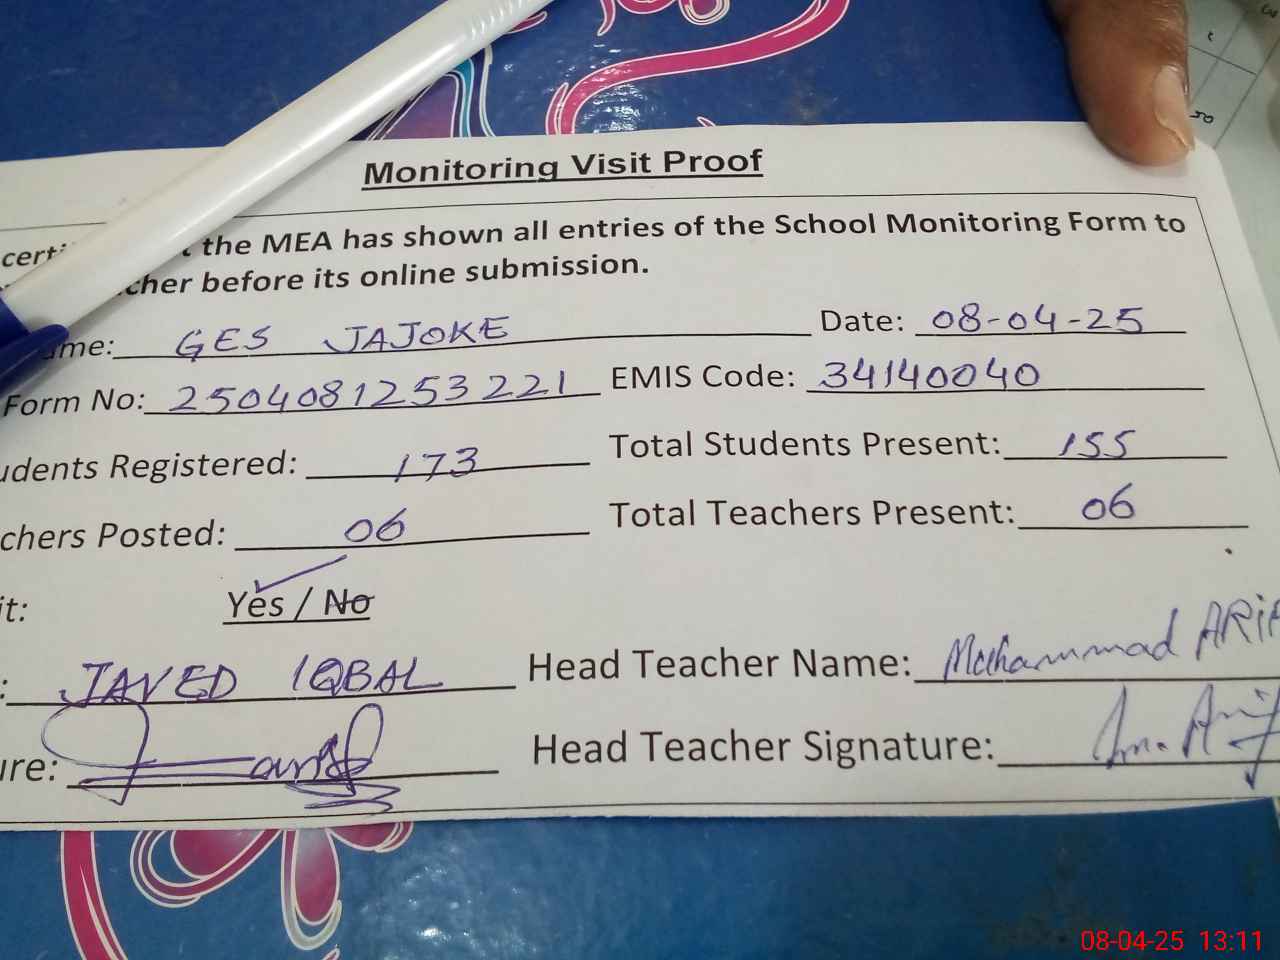 Monitoring Visit Proof
the MEA has shown all entries of the School Monitoring Form to
before its online submission.
GES JAJOKE Date: 08-04-25
Form No: 2504081253221 EMIS Code: 34140040
Registered: 173 Total Students Present: 155
Posted: 06 Total Teachers Present: 06
Yes / No
JAVED IQBAL Head Teacher Name: Mohammad
Head Teacher Signature:
08-04-25 13:11